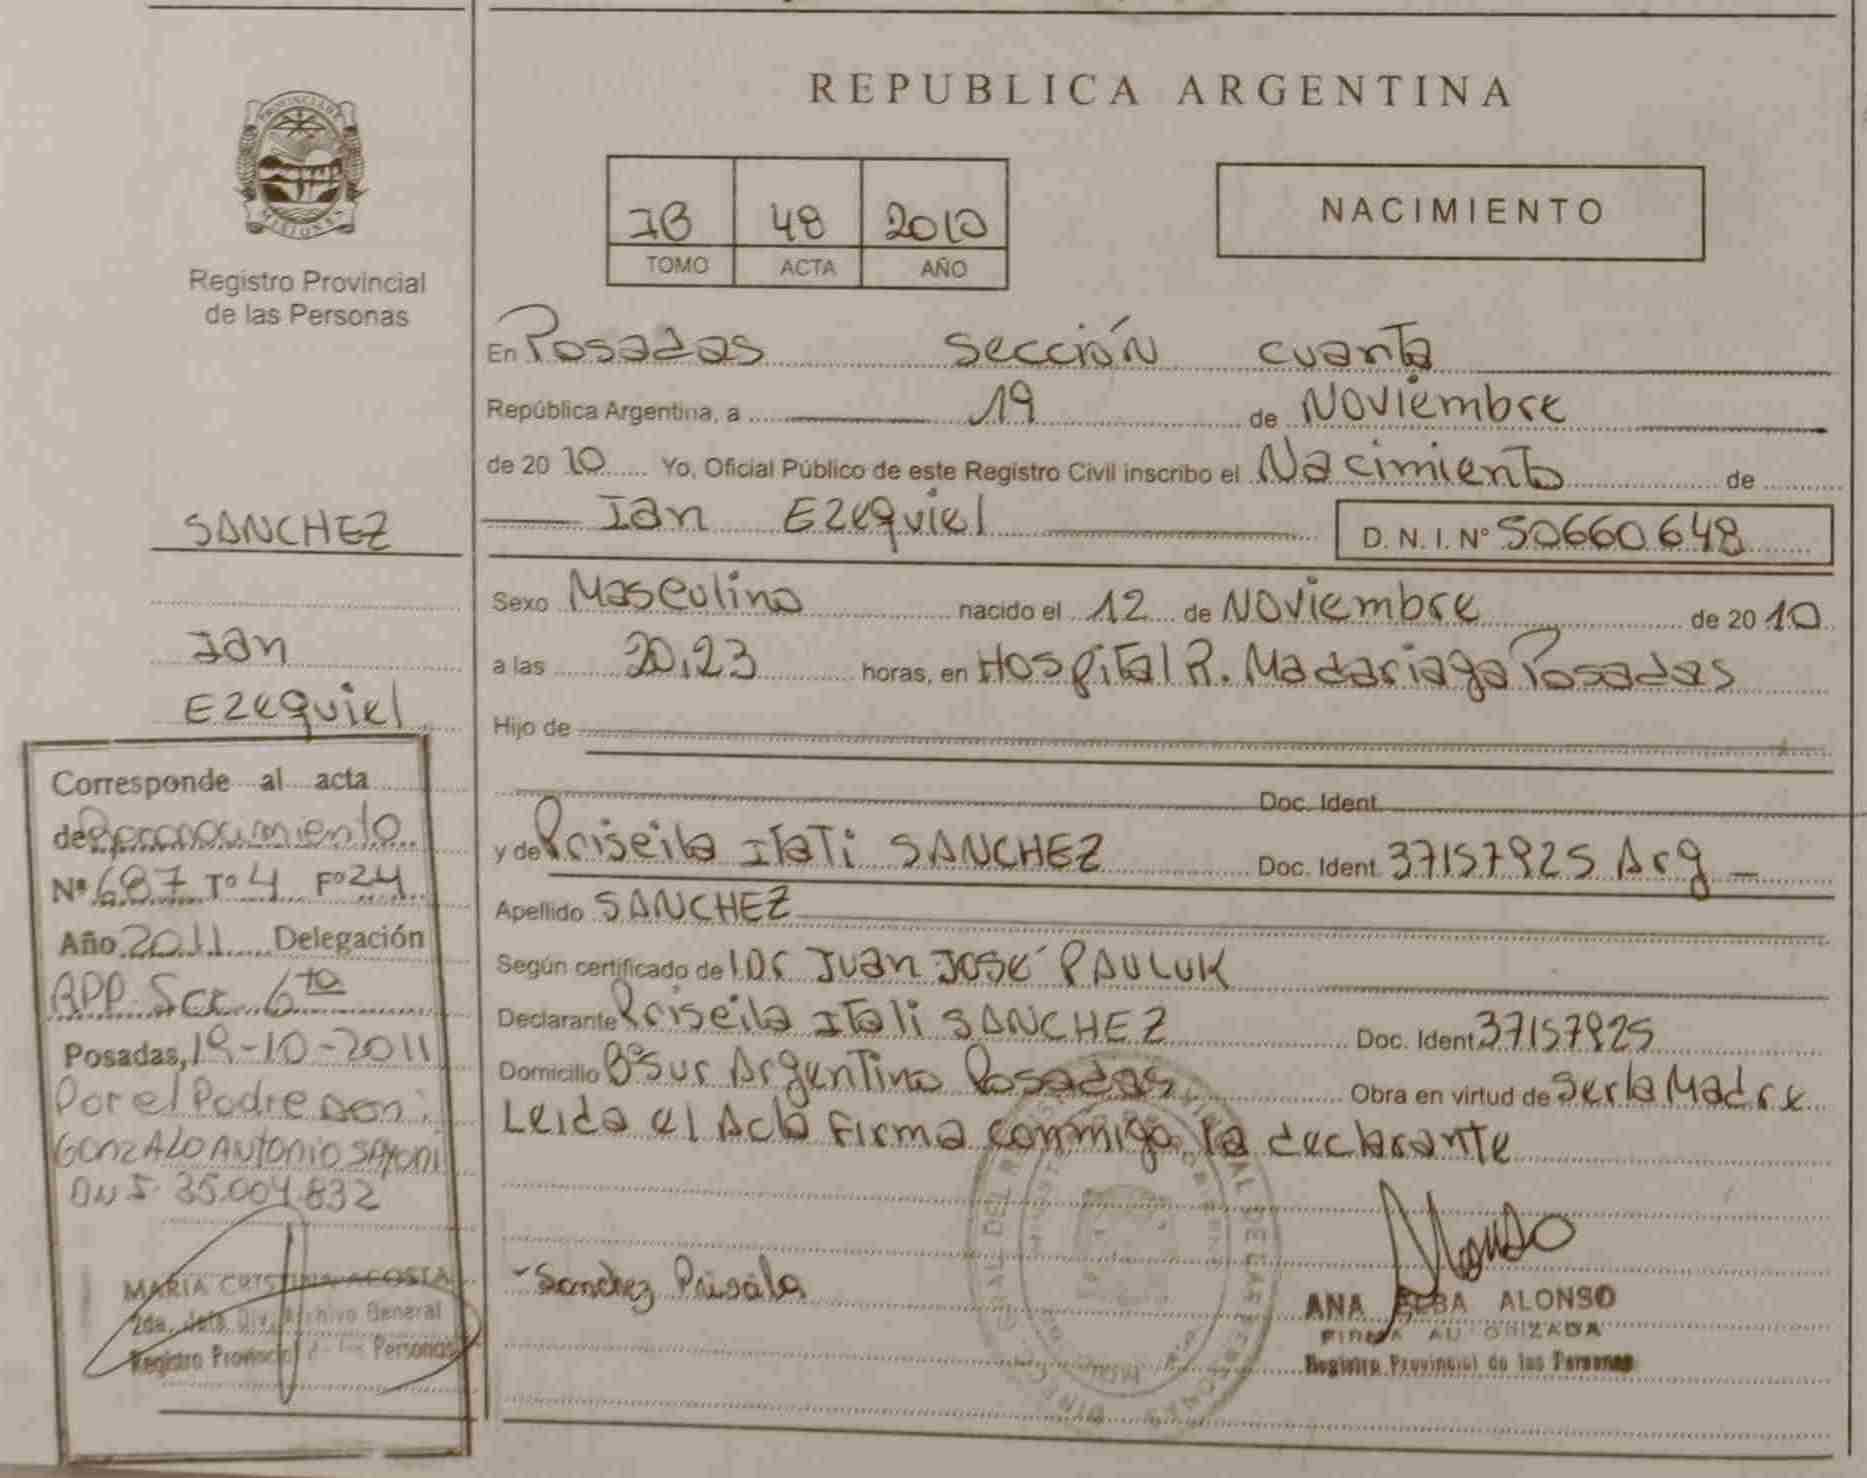 REPUBLICA ARGENTINA
PROVINCIA DE MISIONES
Registro Provincial
de las Personas
IB 48 2010
TOMO ACTA AÑO
NACIMIENTO
En Posadas sección cuarta
República Argentina, a 19 de Noviembre
de 20 10 Yo, Oficial Público de este Registro Civil inscribo el Nacimiento de
Ian Ezequiel D. N. I. N° 50660648
Sexo Masculino nacido el 12 de Noviembre de 20 10
a las 20,23 horas, en Hospital R. Madariaga Posadas
Hijo de
Doc. Ident.
y de Priscila Itati SANCHEZ Doc. Ident. 37157925 Arg
Apellido SANCHEZ
Según certificado de Dr Juan José PAULUK
Declarante Priscila Itati SANCHEZ Doc. Ident 37157925
Domicilio B° Sur Argentino Posadas Obra en virtud de Ser la Madre
Leida el Acta firma conmigo, la declarante
Sanchez Priscila
ANA ELBA ALONSO
FIRMA AUTORIZADA
Registro Provincial de las Personas
SANCHEZ
Ian
Ezequiel
Corresponde al acta
de Reconocimiento
N° 687 T° 4 F° 24
Año 2011 Delegación
RPP Scc 6ta
Posadas, 19-10-2011
Por el Padre Don:
GONZALO ANTONIO
DNI 35.004.832
MARIA CRISTINA ACOSTA
2da. Jefa Div. Archivo General
Registro Provincial de las Personas